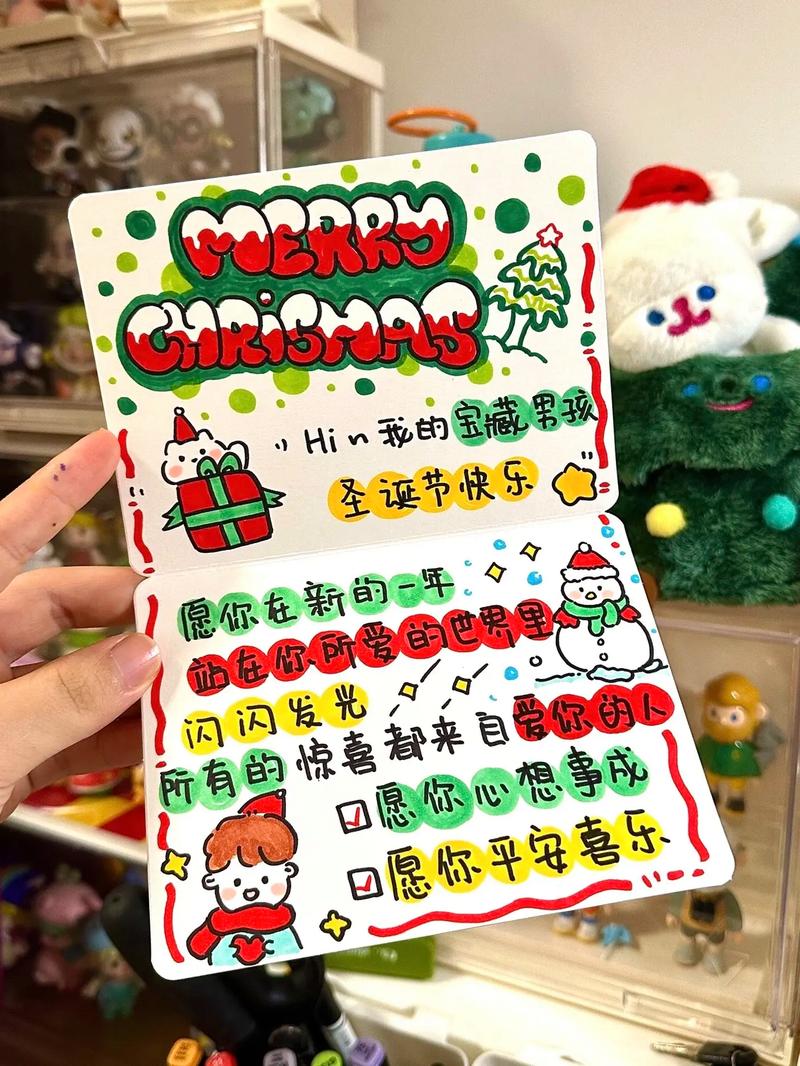 MERRY
CHRISMAS
Hi~我的宝藏男孩
圣诞节快乐
愿你在新的一年
站在你所爱的世界里
闪闪发光
所有的惊喜都来自爱你的人
愿你心想事成
愿你平安喜乐